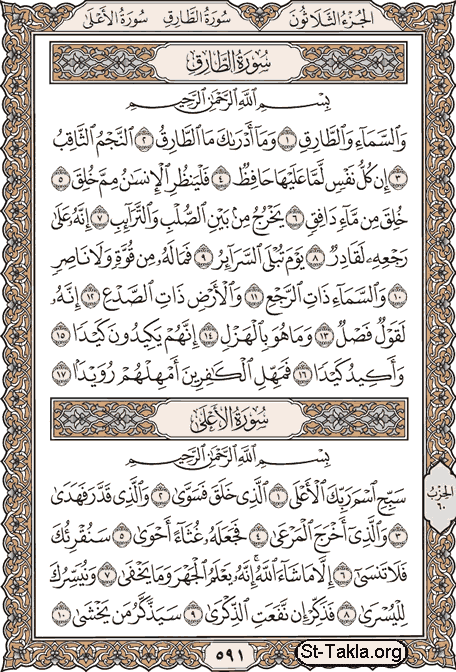 الجزء الثلاثون سورة الطارق سورة الأعلى
سورة الطارق
بِسْمِ ٱللَّهِ ٱلرَّحْمَٰنِ ٱلرَّحِيمِ
وَٱلسَّمَآءِ وَٱلطَّارِقِ ١ وَمَآ أَدْرَىٰكَ مَا ٱلطَّارِقُ ٢ ٱلنَّجْمُ ٱلثَّاقِبُ
٣ إِن كُلُّ نَفْسٍ لَّمَّا عَلَيْهَا حَافِظٌ ٤ فَلْيَنظُرِ ٱلْإِنسَٰنُ مِمَّ خُلِقَ ٥
خُلِقَ مِن مَّآءٍ دَافِقٍ ٦ يَخْرُجُ مِنۢ بَيْنِ ٱلصُّلْبِ وَٱلتَّرَآئِبِ ٧ إِنَّهُۥ عَلَىٰ
رَجْعِهِۦ لَقَادِرٌ ٨ يَوْمَ تُبْلَى ٱلسَّرَآئِرُ ٩ فَمَا لَهُۥ مِن قُوَّةٍ وَلَا نَاصِرٍ
١٠ وَٱلسَّمَآءِ ذَاتِ ٱلرَّجْعِ ١١ وَٱلْأَرْضِ ذَاتِ ٱلصَّدْعِ ١٢ إِنَّهُۥ
لَقَوْلٌ فَصْلٌ ١٣ وَمَا هُوَ بِٱلْهَزْلِ ١٤ إِنَّهُمْ يَكِيدُونَ كَيْدًا ١٥
وَأَكِيدُ كَيْدًا ١٦ فَمَهِّلِ ٱلْكَٰفِرِينَ أَمْهِلْهُمْ رُوَيْدًۢا ١٧
سورة الأعلى
بِسْمِ ٱللَّهِ ٱلرَّحْمَٰنِ ٱلرَّحِيمِ
سَبِّحِ ٱسْمَ رَبِّكَ ٱلْأَعْلَى ١ ٱلَّذِى خَلَقَ فَسَوَّىٰ ٢ وَٱلَّذِى قَدَّرَ فَهَدَىٰ
٣ وَٱلَّذِىٓ أَخْرَجَ ٱلْمَرْعَىٰ ٤ فَجَعَلَهُۥ غُثَآءً أَحْوَىٰ ٥ سَنُقْرِئُكَ
فَلَا تَنسَىٰٓ ٦ إِلَّا مَا شَآءَ ٱللَّهُ إِنَّهُۥ يَعْلَمُ ٱلْجَهْرَ وَمَا يَخْفَىٰ ٧ وَنُيَسِّرُكَ
لِلْيُسْرَىٰ ٨ فَذَكِّرْ إِن نَّفَعَتِ ٱلذِّكْرَىٰ ٩ سَيَذَّكَّرُ مَن يَخْشَىٰ ١٠
الحزب
٦٠
٥٩١
St-Takla.org